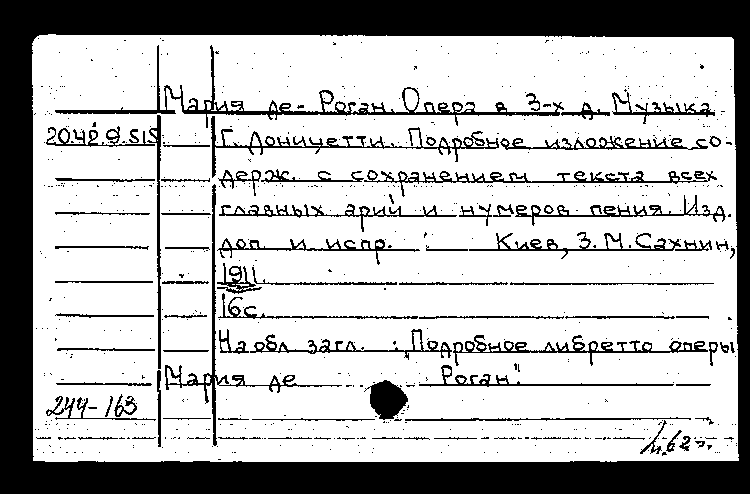 Мария де-Роган. Опера в 3-х д. Музыка
20.42.9.515 Г. Доницетти. Подробное изложение со-
держ. с сохранением текста всех
главных арий и нумеров пения. Изд.
доп и испр. Киев, З.М. Сахнин,
1911.
16с.
На обл загл. : „Подробное либретто оперы
Мария де Роган".
244-163